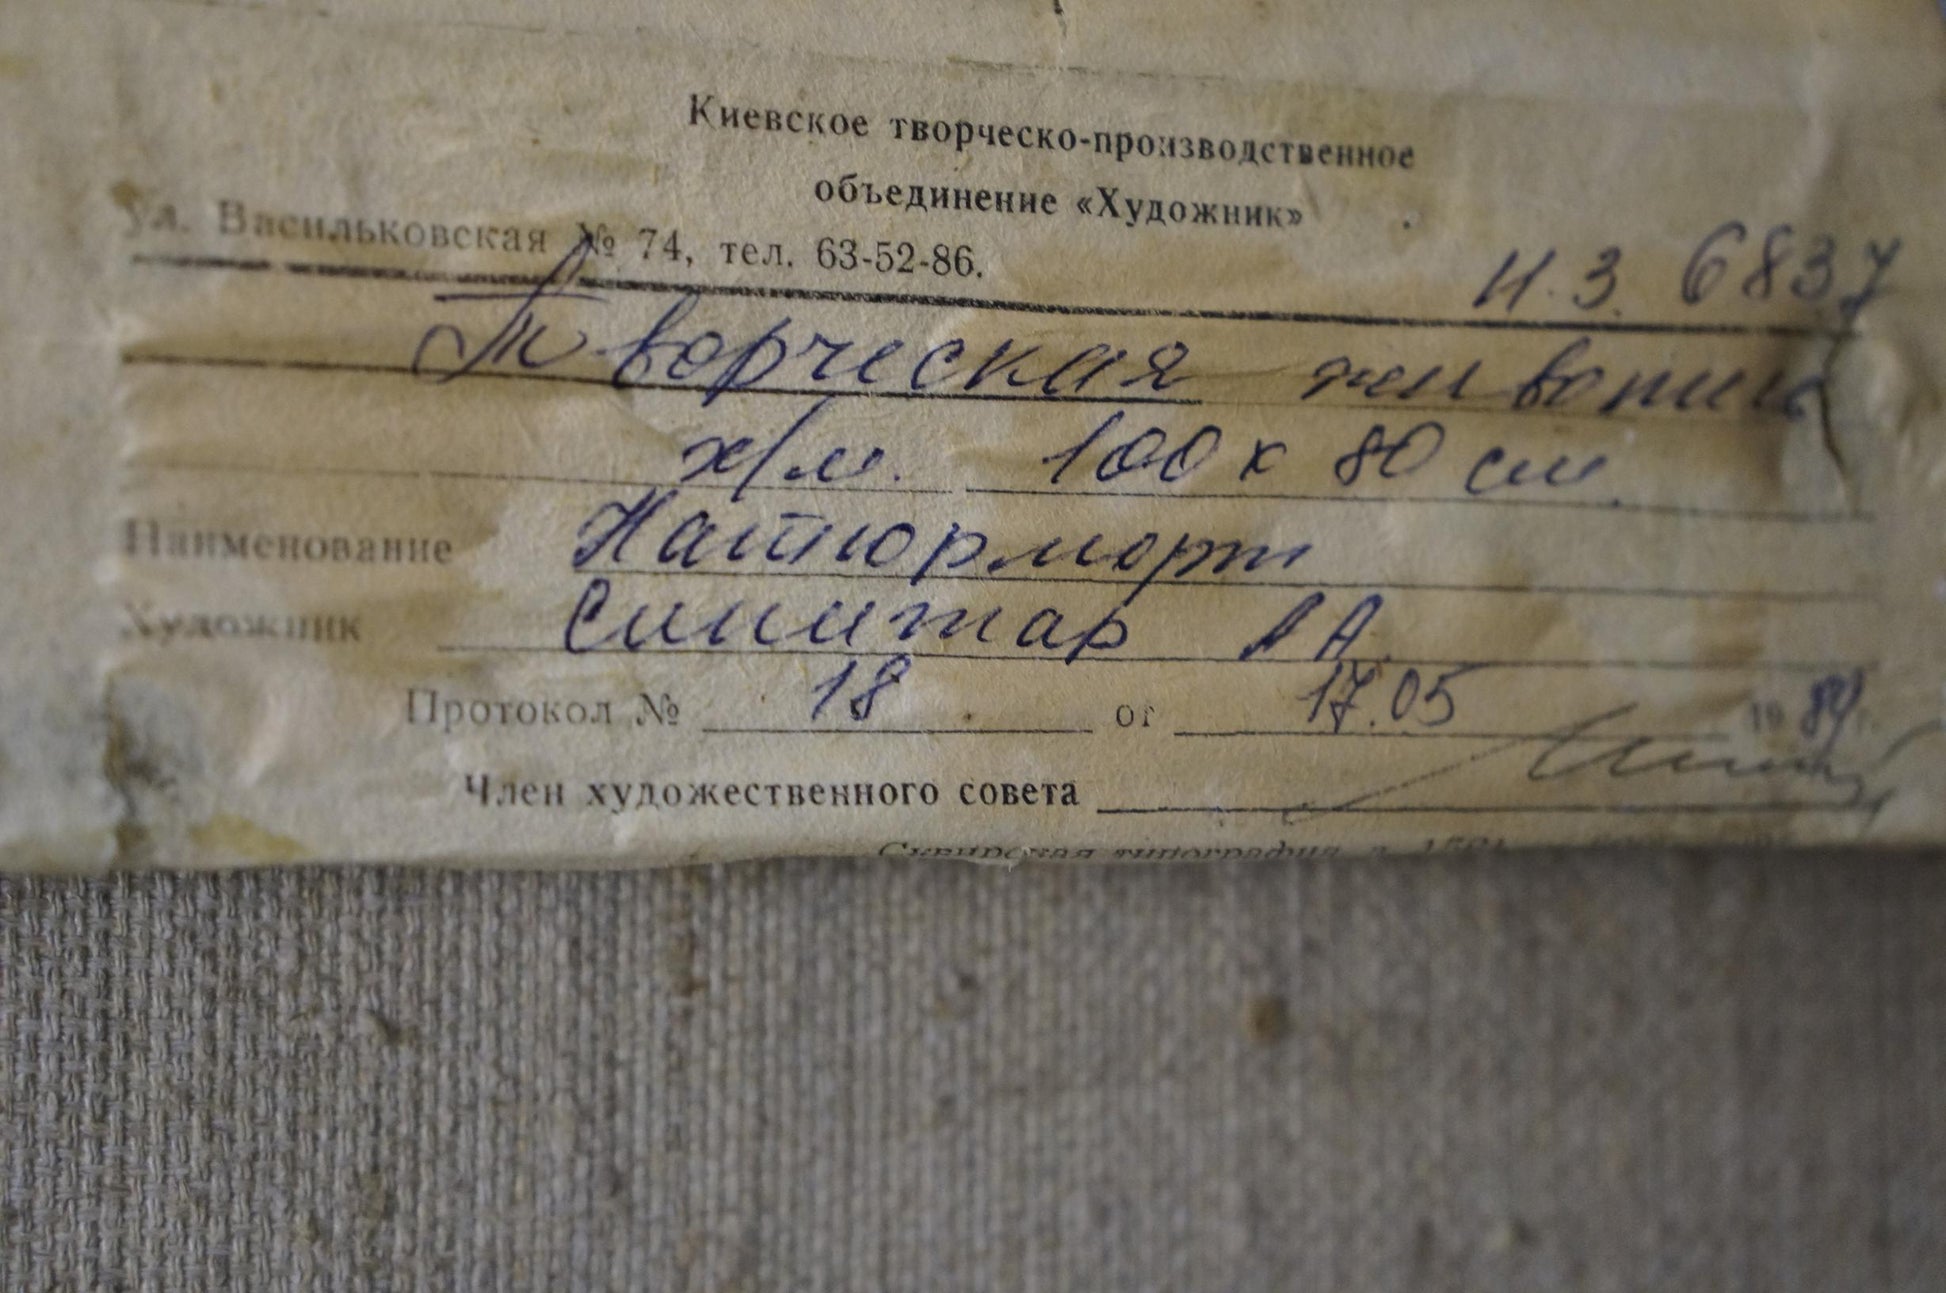 Киевское творческо-производственное
объединение «Художник»
ул. Васильковская № 74, тел. 63-52-86.
Н.З. 6837
Творческая живопись
х/м. 100 х 80 см.
Наименование Натюрморт
Художник
Протокол № 18 от 17.05 1989 г.
Член художественного совета
Сквирская типография